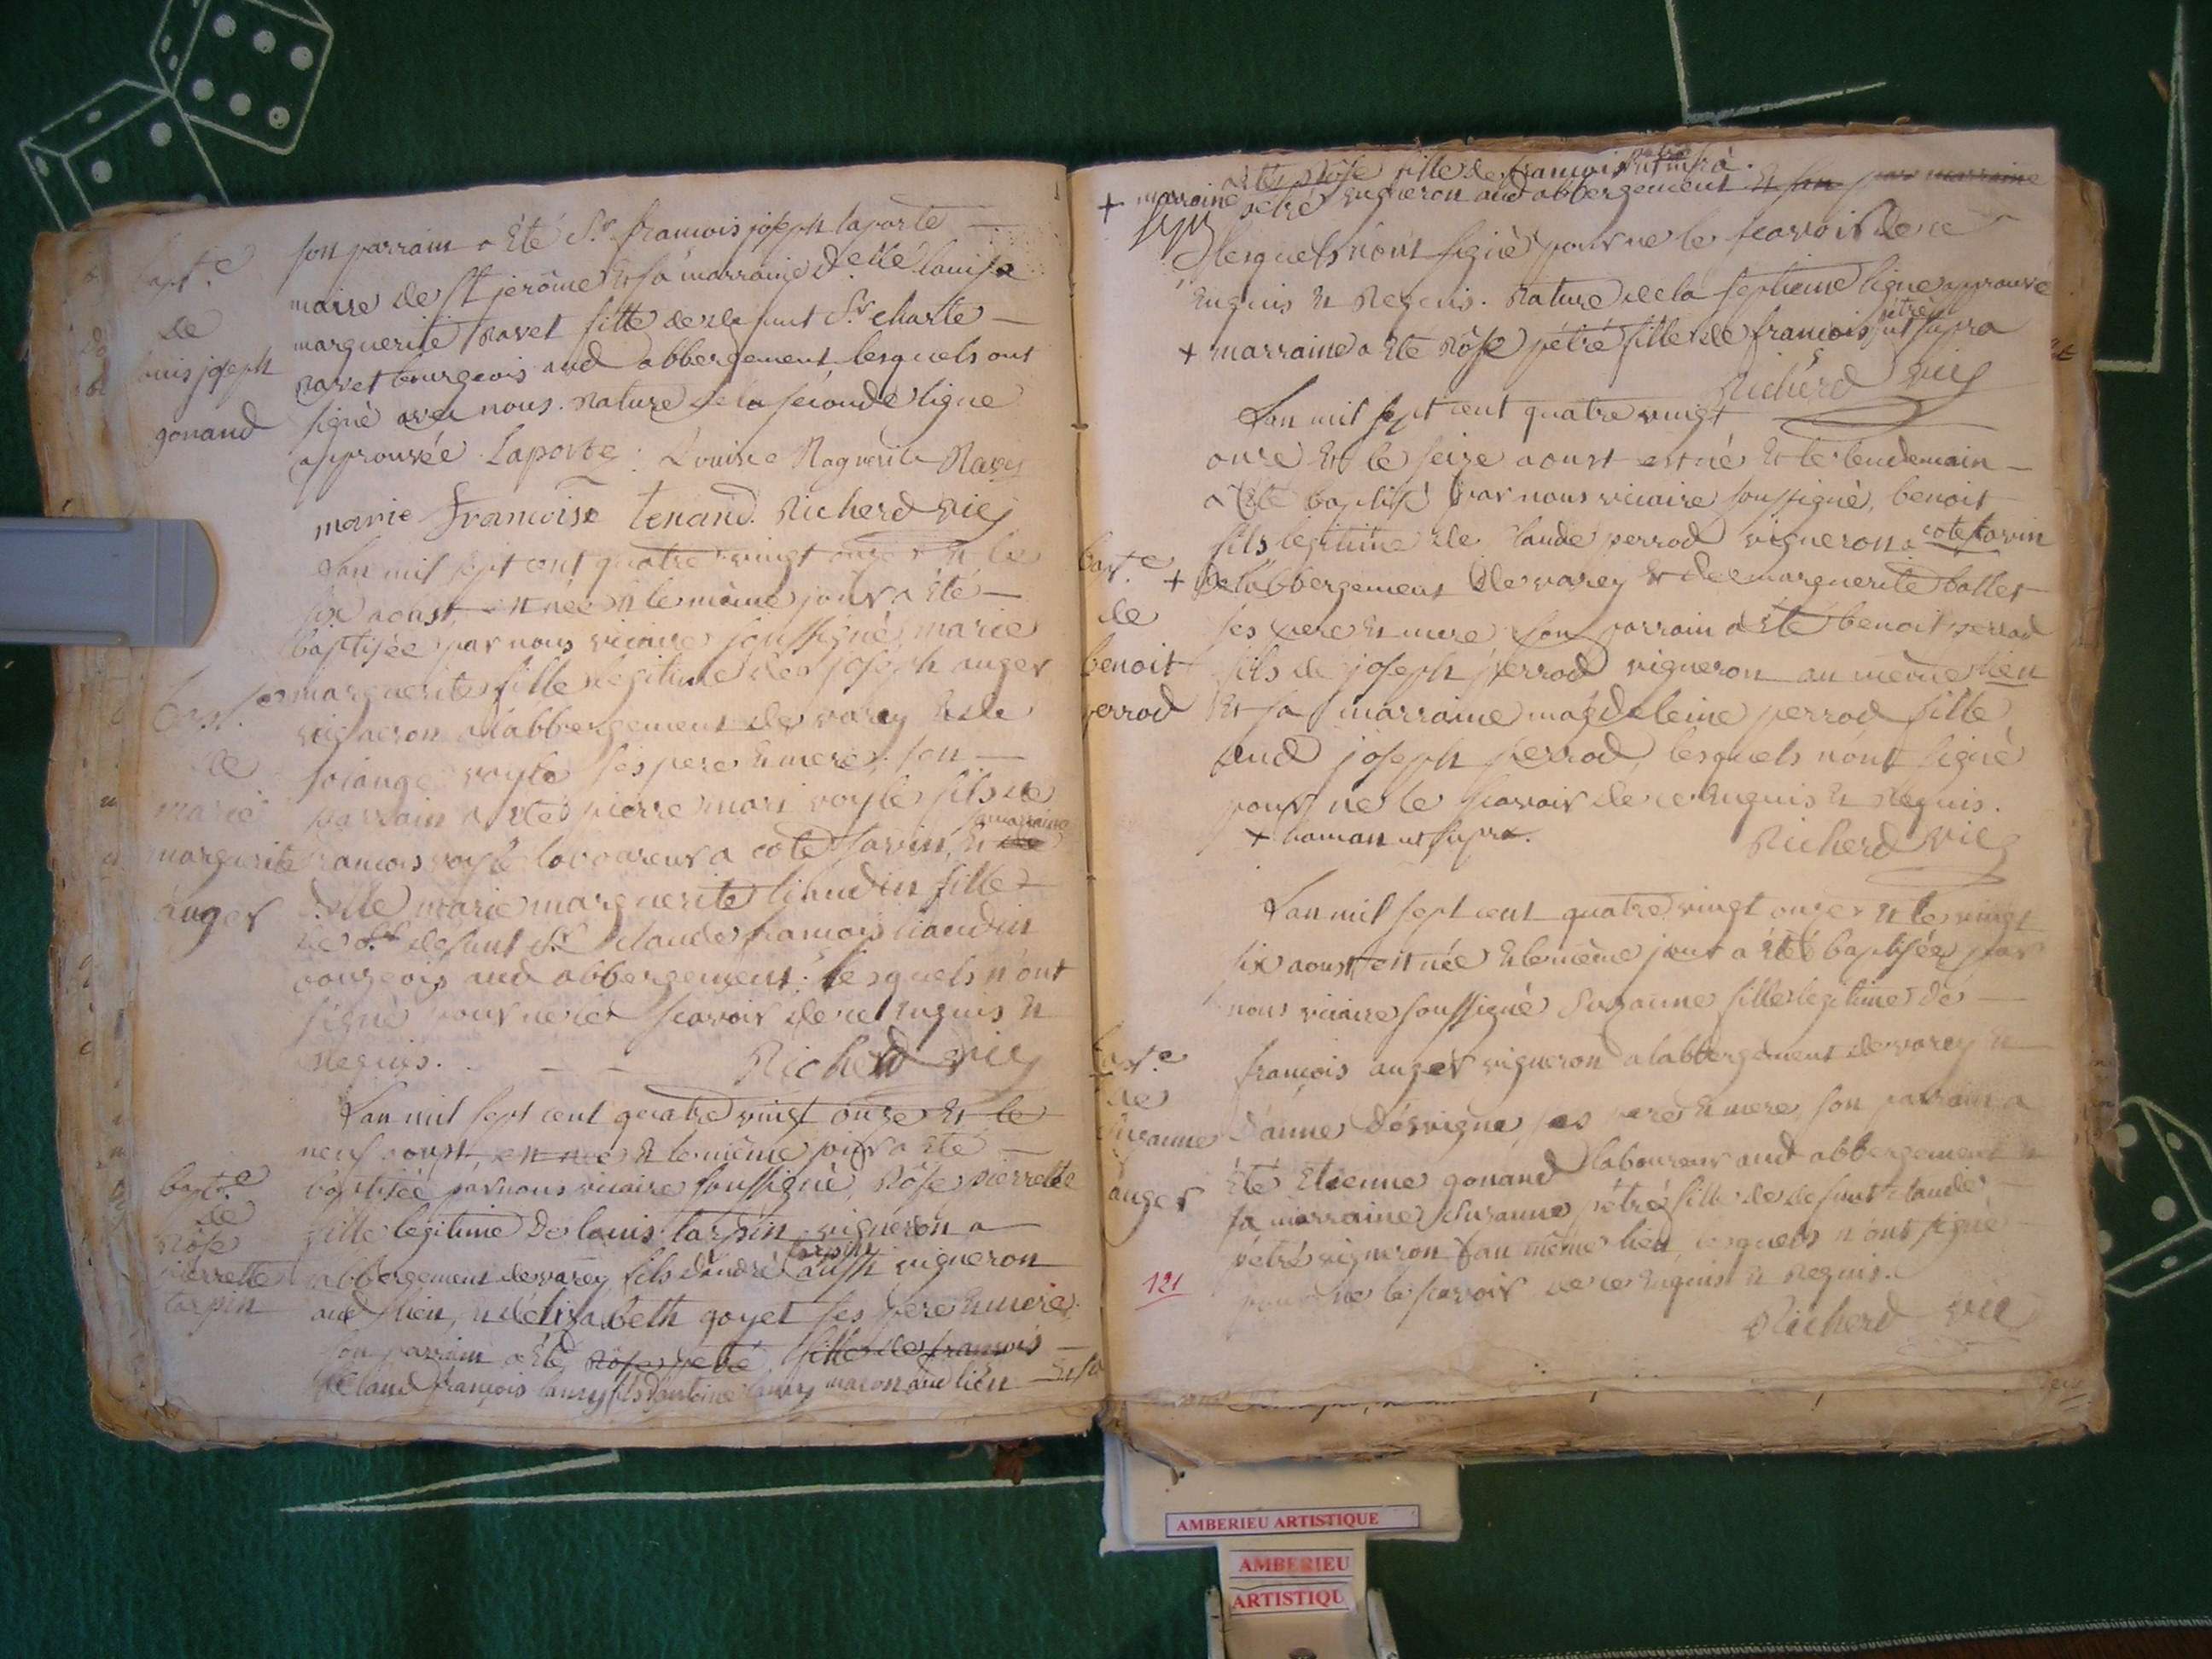 bapt.e
de
louis joseph
gonand
son parrain a été Sr francois joseph laporte
maire de St jerôme Et sa marraine delle louise
marguerite Ravet fille de defunt Sr charle
Ravet bourgeois aud abbergement, lesquels ont
signé avec nous. Rature de la seconde ligne
approuvée Laporte Louise Marguerite Ravet
marie francoise tenand. Richerd vic
Lan mil sept cent quatre vingt onze Et le
six aoust, est née Et le même jour a Eté
baptisée par nous vicaire soussigné, marie
marguerite fille legitime de joseph auger
vigneron a labbergement de varey Et de
solange voyle ses pere Et mere, son
parrain a Eté pierre mari voyle fils de
francois voyle laboureur a cote savin, Et
sa marraine
delle marie marguerite liaudin fille
de defunt Sr claude francois liaudin
bourgeois aud abbergement. lesquels n'ont
signé pour ne le scavoir de ce Enquis Et
Requis. Richerd vic
bapt.e
de
marie
marguerite
auger
Lan mil sept cent quatre vingt onze Et le
neuf aoust, est née Et le même jour a Eté
baptisée par nous vicaire soussigné, Rôse pierrette
fille legitime De louis tarpin vigneron a
abbergement de varey fils d'andré tarpin aussi vigneron
aud lieu, Et d'élizabeth goyet ses pere Et mere.
son parrain a Eté Rôse petré fille de francois
francois lanry fils d'antoine lanry maçon aud lieu Et sa
bapt.e
de
Rôse
pierrette
tarpin
+ marraine a été Rôse fille de francois ut supra.
petré vigneron aud abbergement Et son par marraine
lesquels n'ont signé pour ne le scavoir De ce
Enquis Et Requis. Rature de la septieme ligne approuvé
+ marraine a Eté Rôse pétré fille de francois pétré ut supra
Richerd vic
Lan mil sept cent quatre vingt
onze Et le seize aoust est né Et le lendemain
a Eté baptisé par nous vicaire soussigné, benoit
fils legitime de claude perrod vigneron a cote savin
+ De labbergement de varey Et de marguerite ballet
ses pere Et mere son parrain a Eté benoit perrod
fils de joseph perrod vigneron au même lieu
Et sa marraine magdeleine perrod fille
dud joseph perrod, lesquels n'ont signé
pour ne le scavoir de ce Enquis Et Requis.
+ hamau ut supra. Richerd vic
bapt.e
de
benoit
perrod
Lan mil sept cent quatre vingt onze Et le vingt
six aoust est née Et le même jour a Eté baptisée par
nous vicaire soussigné Suzanne fille legitime de
françois auger vigneron a labbergement de varey Et
d'anne désvigne, ses pere Et mere, son parrain a
Eté Etienne gonand laboureur aud abbergement Et
sa marraine Suzanne pétré fille de defunt claude
pétré vigneron au même lieu, lesquels n'ont signé
pour ne le scavoir de ce Enquis Et Requis.
Richerd vic
bapt.e
de
Suzanne
auger
121
AMBERIEU ARTISTIQUE
AMBERIEU
ARTISTIQU